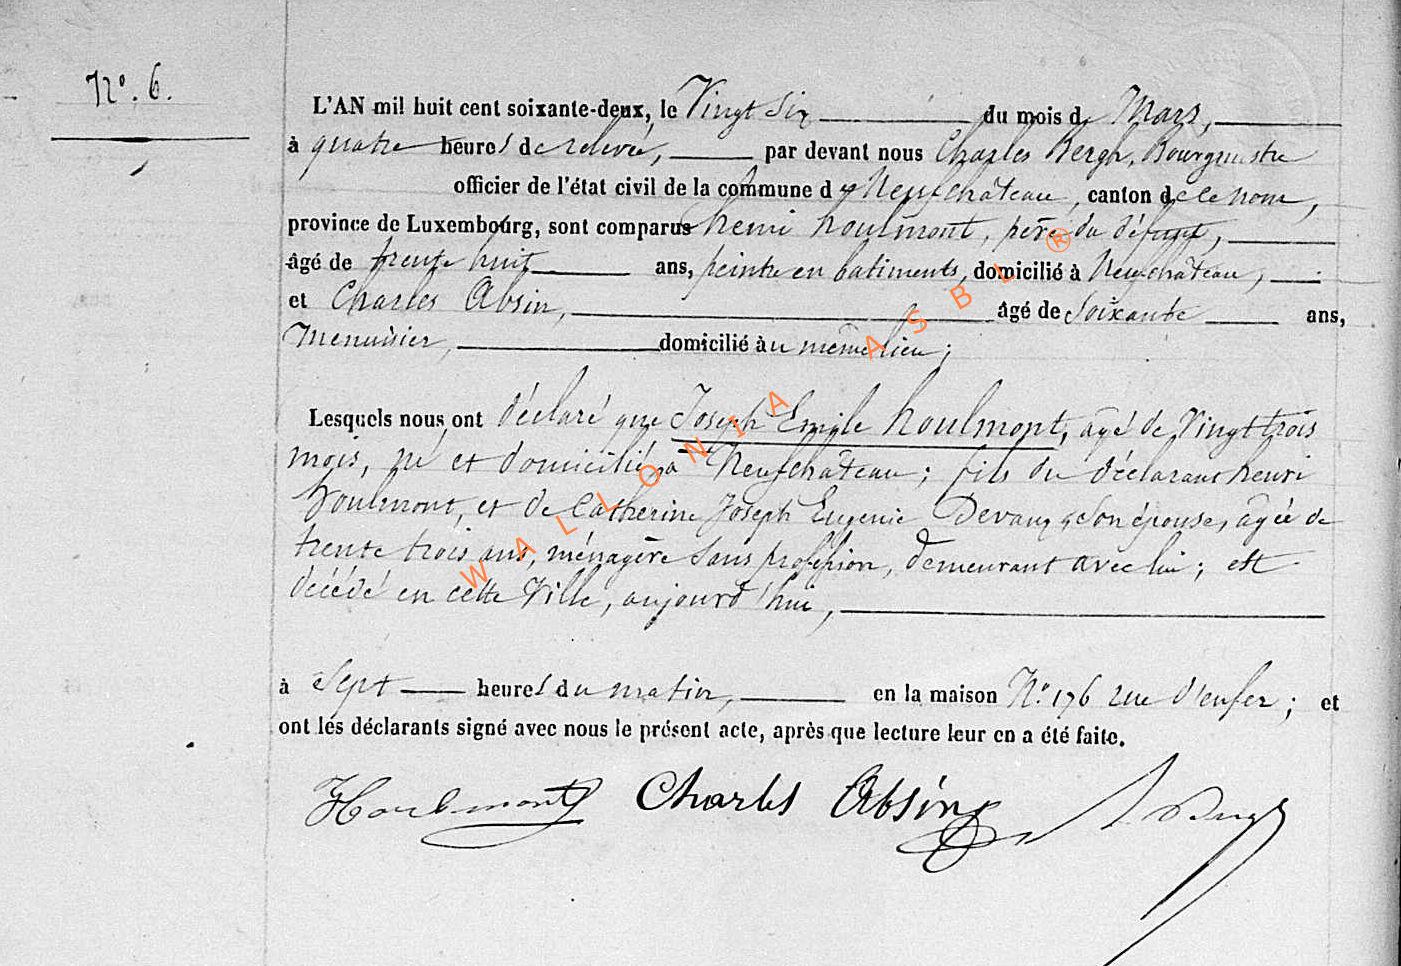 N° 6.
L'AN mil huit cent soixante-deux, le Vingt Six du mois de Mars,
à quatre heures de relevée, par devant nous Charles Bergh, Bourgmestre
officier de l'état civil de la commune de Neufchâteau, canton de ce nom,
province de Luxembourg, sont comparus henri houlmont, père du défunt,
âgé de trente huit ans, peintre en batiments, domicilié à Neufchâteau,
et Charles Absin, âgé de soixante ans,
Menuisier, domicilié au même lieu;
Lesquels nous ont déclaré que Joseph Emile houlmont, agé de Vingt trois
mois, né et domicilié à Neufchâteau; fils du déclarant henri
houlmont, et de Catherine Joseph Eugenie Devaux, son épouse, agée de
trente trois ans, ménagère sans profession, demeurant avec lui; est
décédé en cette Ville, aujourd'hui,
à Sept heures du matin, en la maison N° 176 rue d'enfer; et
ont les déclarants signé avec nous le présent acte, après que lecture leur en a été faite.
Houlmont Charles Absin
WALLONIA ASBL ®